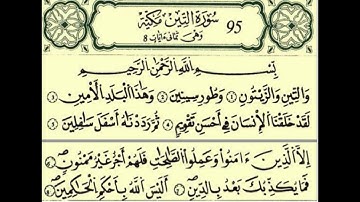 سُورَةُ التِّينِ مَكِّيَّة 95
وَهِيَ ثَمَانِي ءَايَاتٍ 8
بِسْمِ اللَّهِ الرَّحْمَٰنِ الرَّحِيمِ
وَالتِّينِ وَالزَّيْتُونِ ① وَطُورِ سِينِينَ ② وَهَٰذَا الْبَلَدِ الْأَمِينِ ③
لَقَدْ خَلَقْنَا الْإِنسَانَ فِي أَحْسَنِ تَقْوِيمٍ ④ ثُمَّ رَدَدْنَاهُ أَسْفَلَ سَافِلِينَ ⑤
إِلَّا الَّذِينَ ءَامَنُوا وَعَمِلُوا الصَّالِحَاتِ فَلَهُمْ أَجْرٌ غَيْرُ مَمْنُونٍ ⑥
فَمَا يُكَذِّبُكَ بَعْدُ بِالدِّينِ ⑦ أَلَيْسَ اللَّهُ بِأَحْكَمِ الْحَاكِمِينَ ⑧